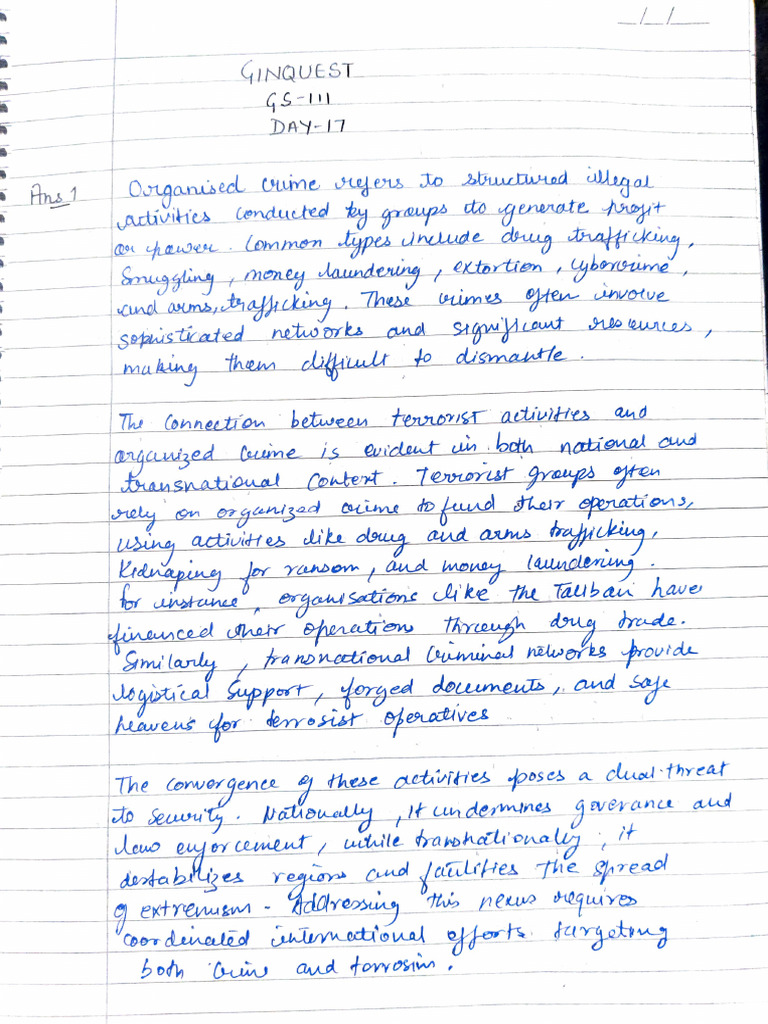 __/__/____
GINQUEST
GS-111
DAY-17
Ans 1 Organised crime refers to structured illegal
activities conducted by groups to generate profit
or power. Common types include drug trafficking,
Smuggling, money laundering, extortion, cybercrime,
and arms, trafficking. These crimes often involve
sophisticated networks and significant resources,
making them difficult to dismantle.
The connection between terrorist activities and
organized crime is evident in both national and
transnational context. Terrorist groups often
rely on organized crime to fund their operations,
using activities like drug and arms trafficking,
Kidnaping for ransom, and money laundering.
for instance, organisations like the Taliban have
financed their operations through drug trade.
Similarly, transnational criminal networks provide
logistical support, forged documents, and safe
heavens for terrosist operatives
The convergence of these activities poses a dual threat
to security. Nationally, it undermines goverance and
law enforcement, while transnationally, it
destabilizes regions and faulities the spread
of extremism - Addressing this nexus requires
coordinated international efforts targeting
both crime and torrosim.